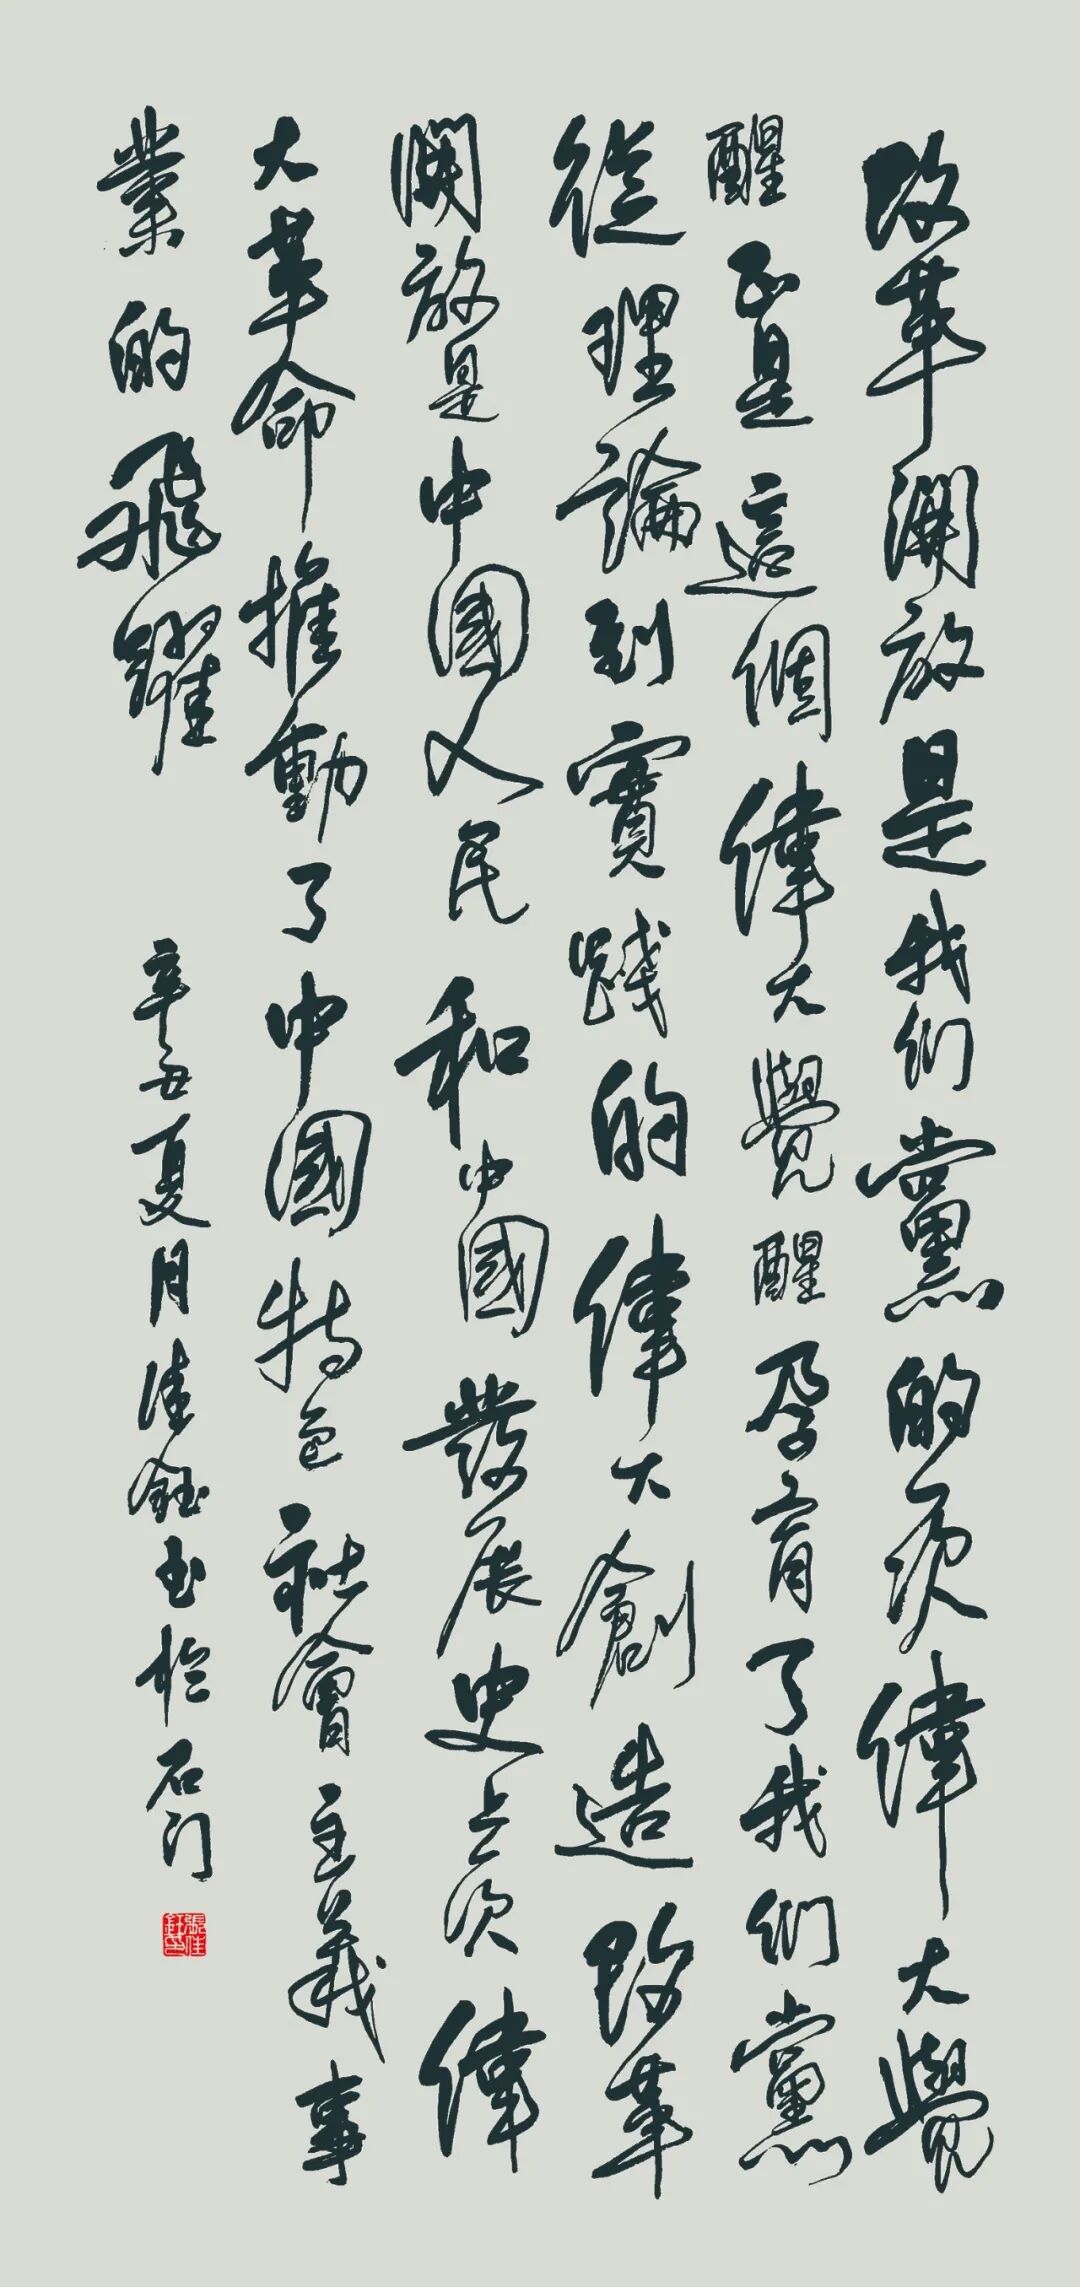 改革開放是我們黨的次偉大覺
醒正是這個偉大覺醒孕育了我們黨
從理論到實踐的偉大創造改革
開放是中國人民和中國發展史上次偉
大革命推動了中國特色社會主義事
業的飛躍
辛丑夏月佳鈺书於石门
張佳鈺印